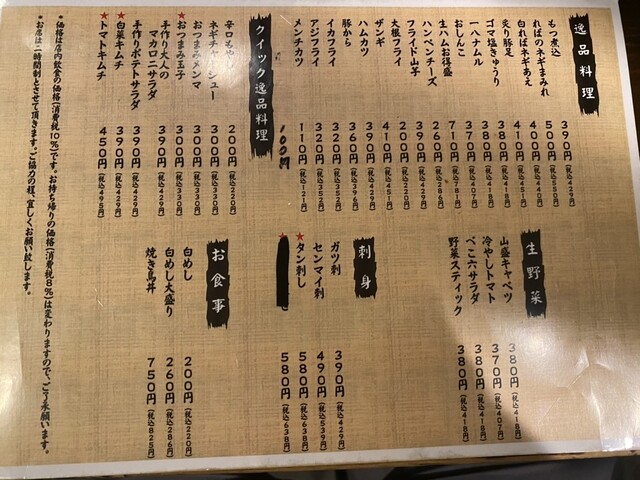 逸品料理
もつ煮込 390円(税込429円)
ればのネギまみれ 500円(税込550円)
白ればネギあえ 400円(税込440円)
ゴマ塩きゅうり
炙り豚足 380円(税込418円)
一八ナムル 380円(税込418円)
おしんこ 370円(税込407円)
生ハムお得盛 710円(税込781円)
ハンペンチーズ 260円(税込286円)
フライド山芋 390円(税込429円)
大根フライ 200円(税込220円)
ザンギ 410円(税込451円)
ハムカツ 390円(税込429円)
豚から 360円(税込396円)
イカフライ 320円(税込352円)
アジフライ 320円(税込352円)
メンチカツ 110円(税込121円)
100円
クイック逸品料理
辛口もやし 200円(税込220円)
ネギチャーシュー 300円(税込330円)
おつまみメンマ 300円(税込330円)
★おつまみ玉子 300円(税込330円)
手作り大人のマカロニサラダ 390円(税込429円)
手作りポテトサラダ 390円(税込429円)
★白菜キムチ 390円(税込429円)
★トマトキムチ 450円(税込495円)
生野菜
山盛キャベツ 380円(税込418円)
冷やしトマト 370円(税込407円)
ぺこ六サラダ 380円(税込418円)
野菜スティック 380円(税込418円)
刺身
ガツ刺 390円(税込429円)
センマイ刺 490円(税込539円)
★タン刺し 580円(税込638円)
★ 580円(税込638円)
お食事
白めし 200円(税込220円)
白めし大盛り 260円(税込286円)
焼き鳥丼 750円(税込825円)
・価格は店内飲食の価格(消費税10%)です。お持ち帰りの価格(消費税8%)は変わりますので、ご了承願います。
・お席は二時間制とさせて頂きます。ご協力の程、宜しくお願い致します。